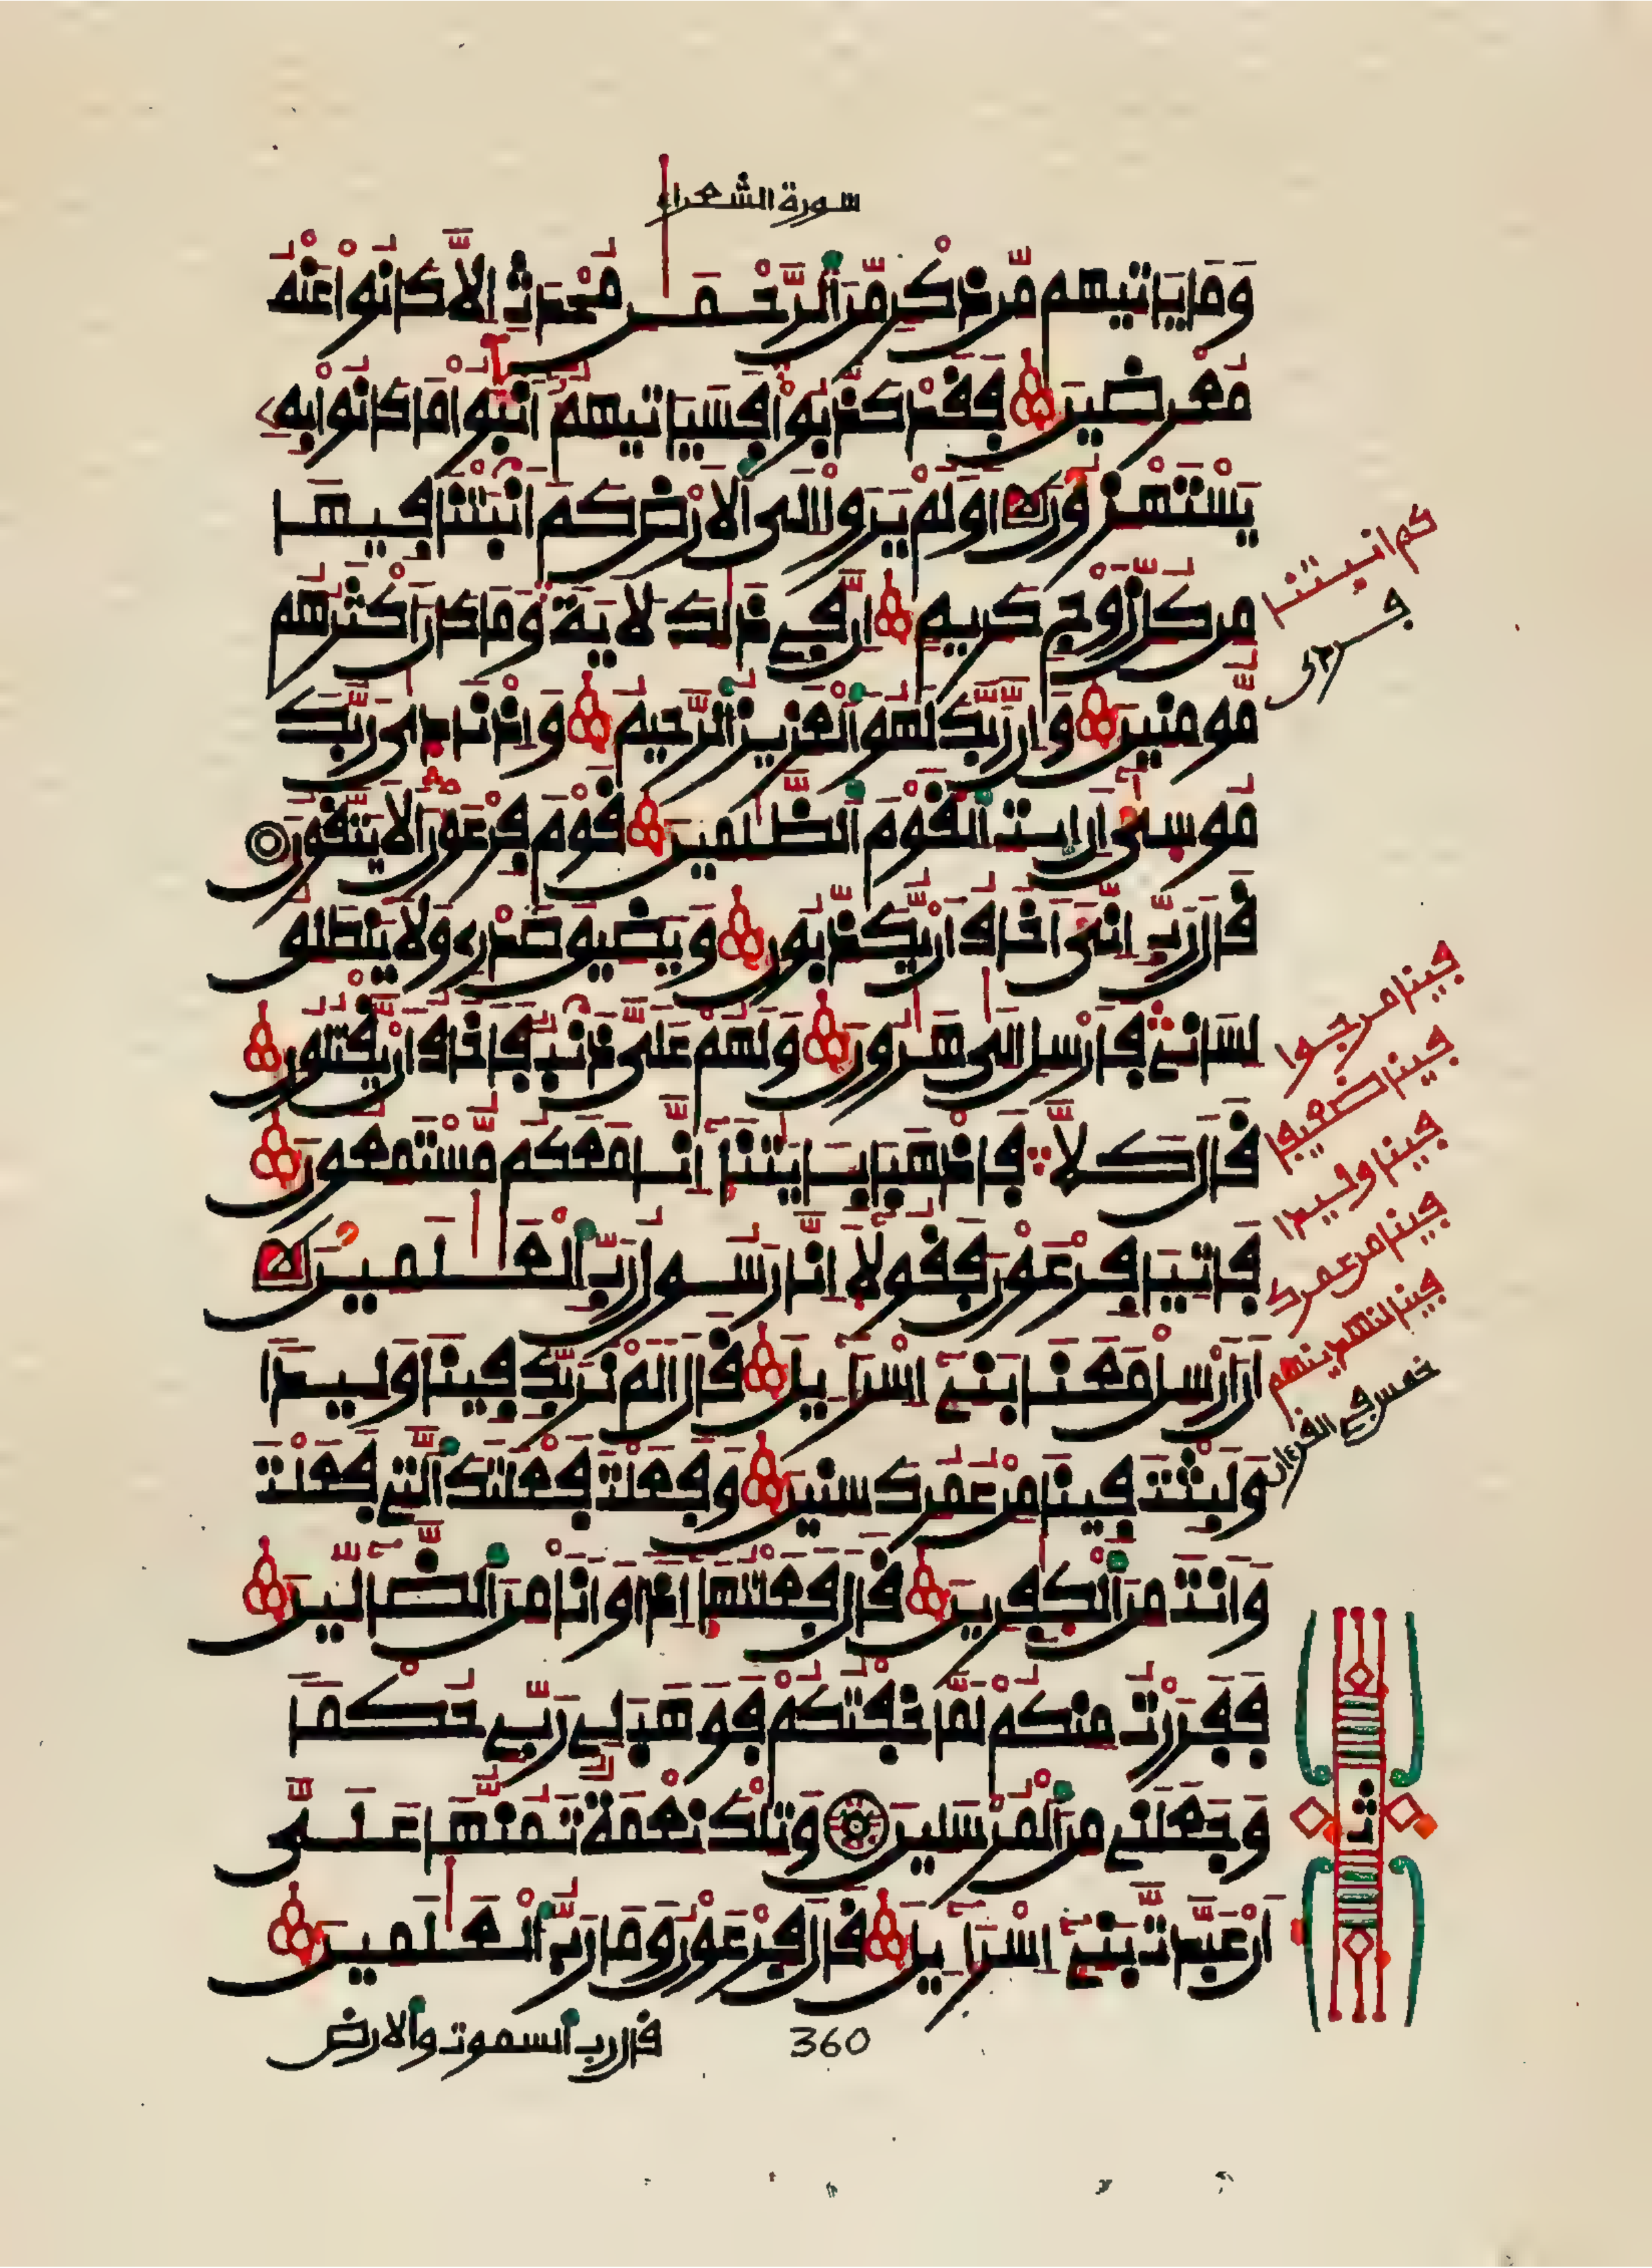 سورة الشعراء
وَمَا يَاتِيهِم مِّن ذِكْرٍ مِّنَ اَلرَّحْمَٰنِ مُحْدَثٍ اِلَّا كَانُواْ عَنْهُ
مُعْرِضِينَ فَقَدْ كَذَّبُواْ فَسَيَاتِيهِمُ أَنۢبَٰٓؤُاْ مَا كَانُواْ بِهِ
يَسْتَهْزِءُونَ أَوَلَمْ يَرَوِاْ اِلَى اَلَارْضِ كَمَ اَنۢبَتْنَا فِيهَا
مِن كُلِّ زَوْجٍ كَرِيمٍ اِنَّ فِي ذَٰلِكَ لَأَيَةً وَمَا كَانَ أَكْثَرُهُم
مُّومِنِينَ وَإِنَّ رَبَّكَ لَهُوَ اَلْعَزِيزُ اَلرَّحِيمُ وَإِذْ نَادَىٰ رَبُّكَ
مُوسَىٰٓ أَنِ اِيتِ اِلْقَوْمَ اَلظَّٰلِمِينَ قَوْمَ فِرْعَوْنَ أَلَا يَتَّقُونَ
قَالَ رَبِّ إِنِّيَ أَخَافُ أَنْ يُّكَذِّبُونِ وَيَضِيقُ صَدْرِي وَلَا يَنطَلِقُ
لِسَانِي فَأَرْسِلِ اِلَىٰ هَٰرُونَ وَلَهُمْ عَلَيَّ ذَنۢبٌ فَأَخَافُ أَنْ يَّقْتُلُونِ
قَالَ كَلَّا فَاذْهَبَا بِـَٔايَٰتِنَآ إِنَّا مَعَكُم مُّسْتَمِعُونَ
فَاتِيَا فِرْعَوْنَ فَقُولَآ إِنَّا رَسُولُ رَبِّ اِلْعَٰلَمِينَ
أَنَ اَرْسِلْ مَعَنَا بَنِيٓ إِسْرَآءِيلَ قَالَ أَلَمْ نُرَبِّكَ فِينَا وَلِيدًا
وَلَبِثْتَ فِينَا مِنْ عُمُرِكَ سِنِينَ وَفَعَلْتَ فَعْلَتَكَ اَلَّتِي فَعَلْتَ
وَأَنتَ مِنَ اَلْكَٰفِرِينَ قَالَ فَعَلْتُهَآ إِذًا وَأَنَا مِنَ اَلضَّآلِّينَ
فَفَرَرْتُ مِنكُمْ لَمَّا خِفْتُكُمْ فَوَهَبَ لِي رَبِّي حُكْمًا
وَجَعَلَنِي مِنَ اَلْمُرْسَلِينَ وَتِلْكَ نِعْمَةٌ تَمُنُّهَا عَلَيَّ
أَنْ عَبَّدتَّ بَنِيٓ إِسْرَآءِيلَ قَالَ فِرْعَوْنُ وَمَا رَبُّ اُلْعَٰلَمِينَ
قال رب السموت والارض
360
كم انبتنا
فينا مرجوا
فينا ضعيفا
فينا وليدا
فينا من عمرك
فينا لنهدينهم
خمس في القرءان
ثمن